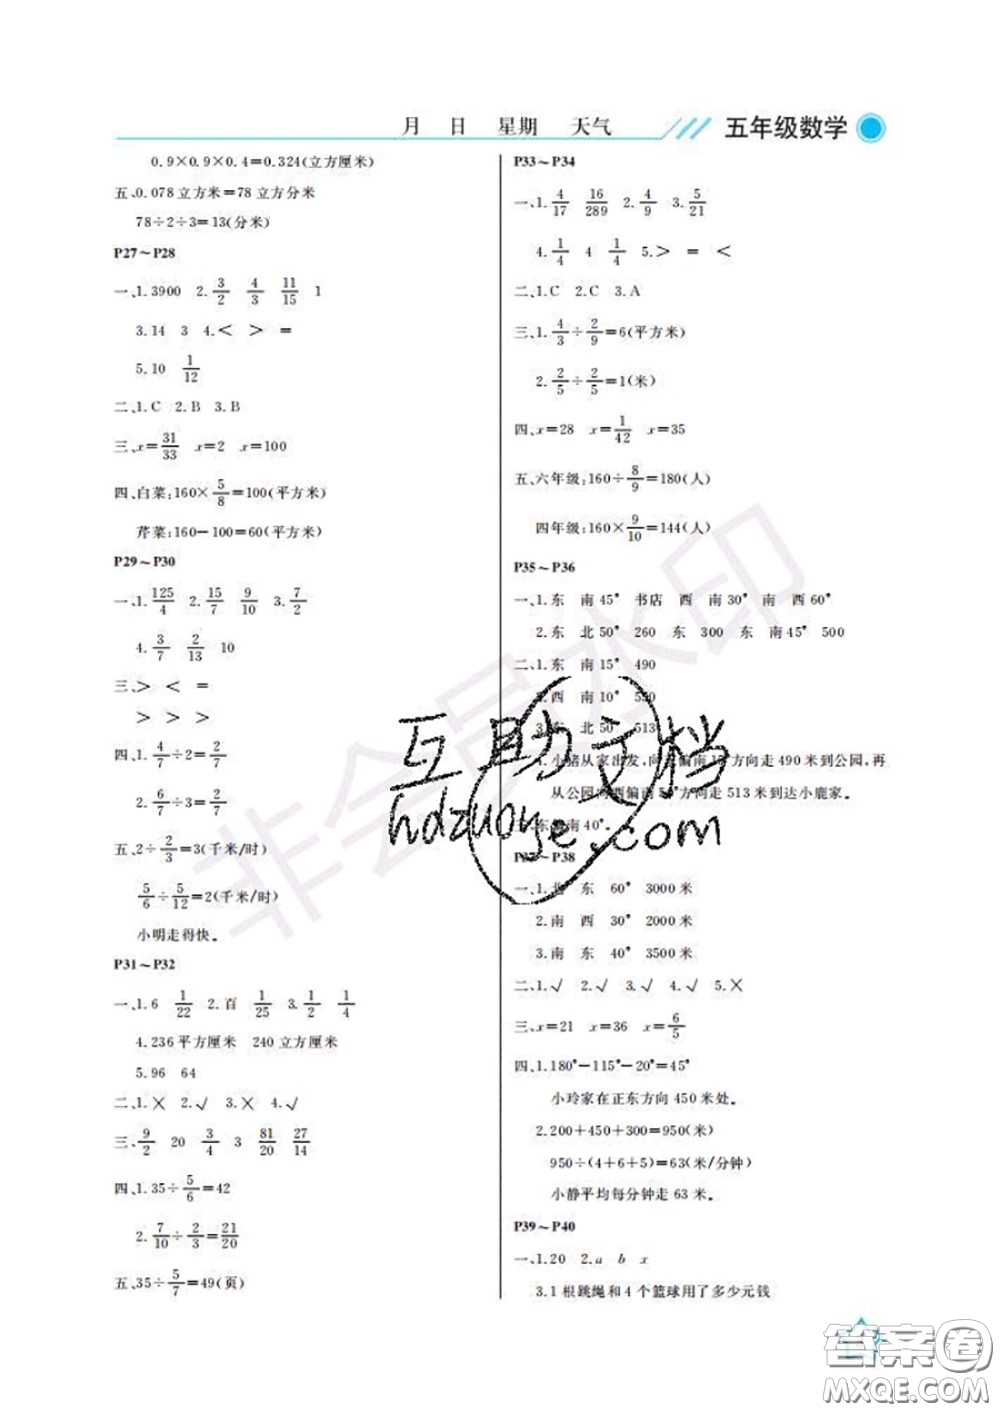 月 日 星期 天气 五年级数学
0.9×0.9×0.4=0.324(立方厘米)
五、0.078立方米=78立方分米
78÷2÷3=13(分米)
P27~P28
一、1.3900 2.3/2 4/3 11/15 1
3.14 3 4.< > =
5.10 1/12
二、1.C 2.B 3.B
三、x=31/33 x=2 x=100
四、白菜:160×5/8=100(平方米)
芹菜:160-100=60(平方米)
P29~P30
一、1.125/4 2.15/7 9/10 3.7/2
4.3/7 2/13 10
三、> < =
> > >
四、1.4/7÷2=2/7
2.6/7÷3=2/7
五、2÷2/3=3(千米/时)
5/6÷5/12=2(千米/时)
小明走得快。
P31~P32
一、1.6 1/22 2.百 1/25 3.1/2 1/4
4.236平方厘米 240立方厘米
5.96 64
二、1.× 2.√ 3.× 4.√
三、9/2 20 3/4 3 81/20 27/14
四、1.35÷5/6=42
2.7/10÷2/3=21/20
五、35÷5/7=49(页)
P33~P34
一、1.4/17 16/289 2.4/9 3.5/21
4.1/4 4 1/4 5.> = <
二、1.C 2.C 3.A
三、1.4/3÷2/9=6(平方米)
2.2/5÷2/5=1(米)
四、x=28 x=1/42 x=35
五、六年级:160÷8/9=180(人)
四年级:160×9/10=144(人)
P35~P36
一、1.东 南45° 书店 西 南30° 南 西60°
2.东 北50° 260 东 300 东 南45° 500
二、1.东 南15° 490
西 南10° 550
3.东 北50° 513
4.小猪从家出发,向东偏南15°方向走490米到公园,再
从公园向西偏南50°方向走513米到达小鹿家。
东偏南40°。
P37~P38
一、1.北 东 60° 3000米
2.南 西 30° 2000米
3.南 东 40° 3500米
二、1.√ 2.√ 3.√ 4.√ 5.×
三、x=21 x=36 x=6/5
四、1.180°-115°-20°=45°
小玲家在正东方向450米处。
2.200+450+300=950(米)
950÷(4+6+5)=63(米/分钟)
小静平均每分钟走63米。
P39~P40
一、1.20 2.a b x
3.1根跳绳和4个篮球用了多少元钱
互助文档
hdzuoye.com
非会员水印
答案圈
MXQE.COM